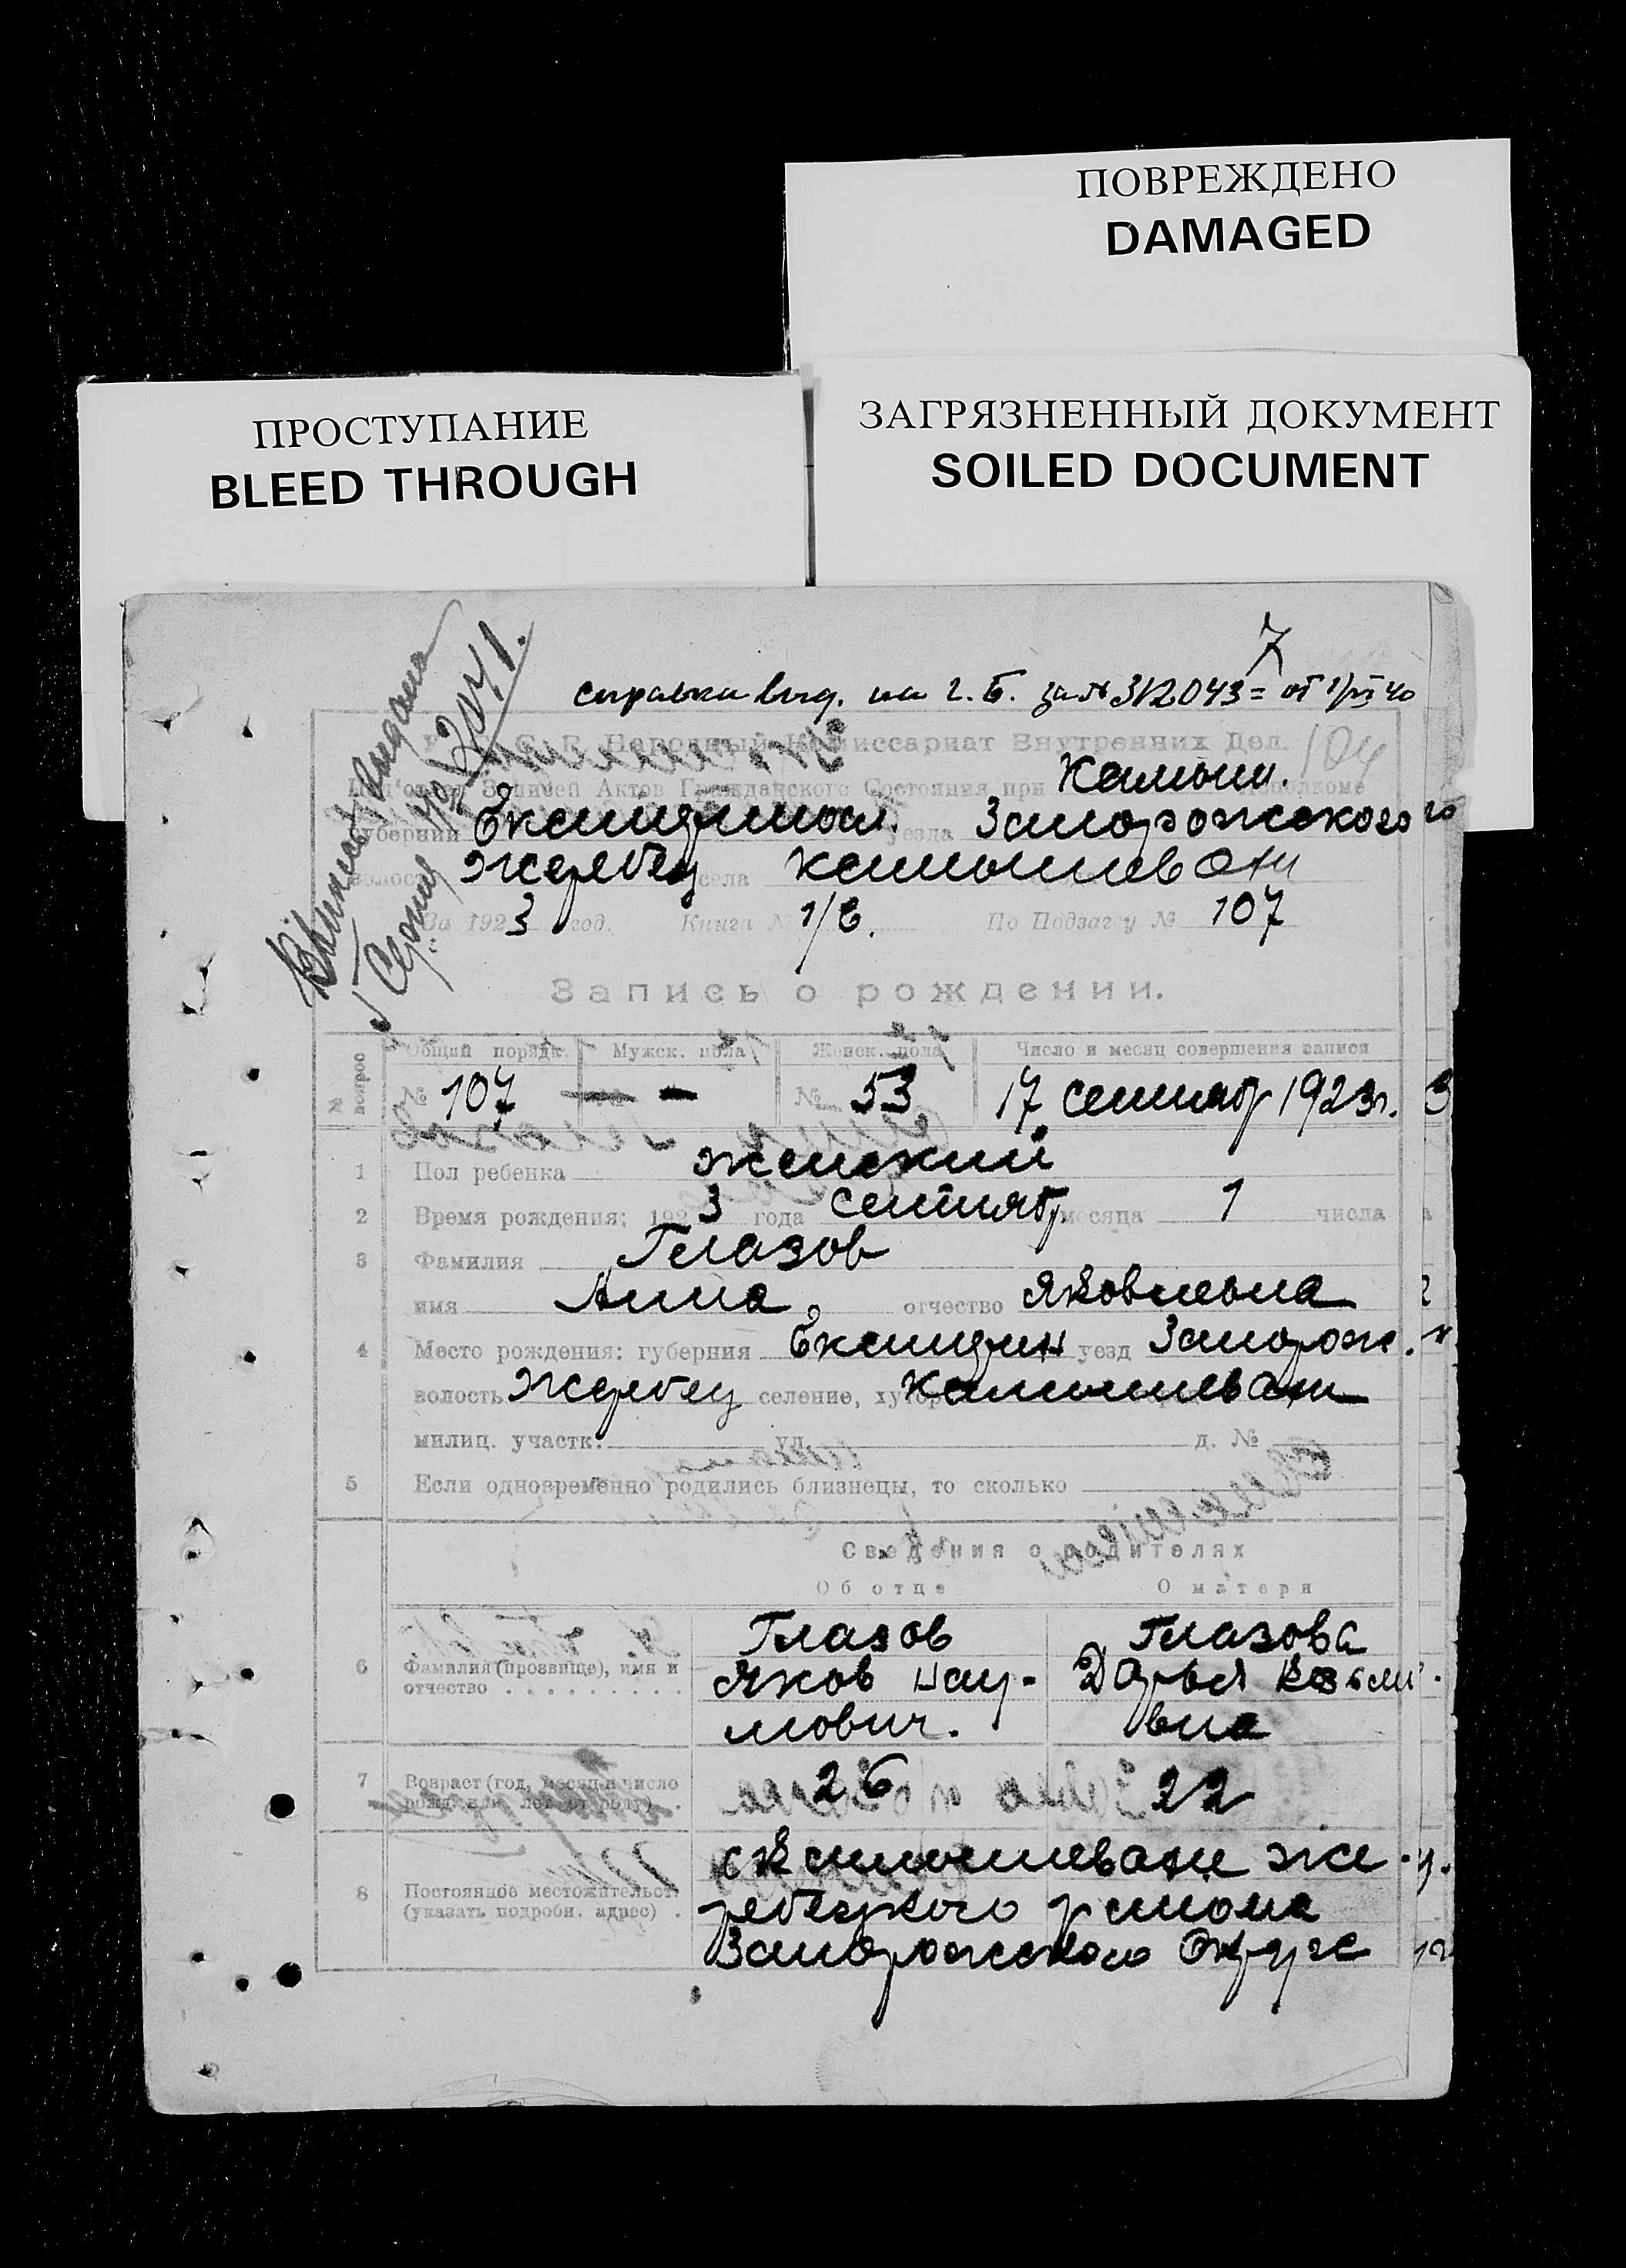 ПОВРЕЖДЕНО
DAMAGED
ПРОСТУПАНИЕ
BLEED THROUGH
ЗАГРЯЗНЕННЫЙ ДОКУМЕНТ
SOILED DOCUMENT
7
справка выд. на г. Б. за № 312043 = от
104
Выписка выдана
С.Р. Народный Комиссариат Внутренних Дел.
Подотдел Записей Актов Гражданского Состояния при Камыш. исполкоме
губернии уезда Запорожского
волости Жеребец села Камышеваты
За 1923 год. Книга № По Подзагсу № 107
Запись о рождении.
№ вопрос Общий порядк. Мужск. пола Женск. пола Число и месяц совершения записи
№ 107 № — № 53 17 сентяб 1923 г.
1 Пол ребенка женский
2 Время рождения: 1923 года сентяб месяца 1 числа
3 Фамилия Глазов
имя Анна отчество Яковлевна
4 Место рождения: губерния уезд Запорож.
волость Жеребец селение, хутор Камышеваты
милиц. участк. ул. д. №
5 Если одновременно родились близнецы, то сколько
Сведения о родителях
Об отце О матери
6 Фамилия (прозвище), имя и отчество Глазов Глазова
Яков Нау- Дарья Козьми-
мович. вна
7 Возраст (год, месяц и число рожд. или лет от роду) 26 22
8 Постоянное местожительст. (указать подробн. адрес) с Камышеваты Же-
ребецкого района
Запорожского Округа